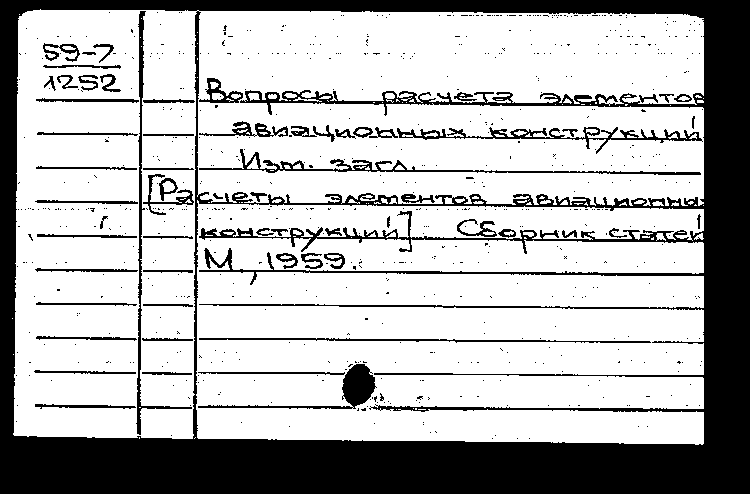 59-7
1252
Вопросы расчета элементов
авиационных конструкций
Изм. загл.
[Расчеты элементов авиационных
конструкций] Сборник статей
М., 1959.